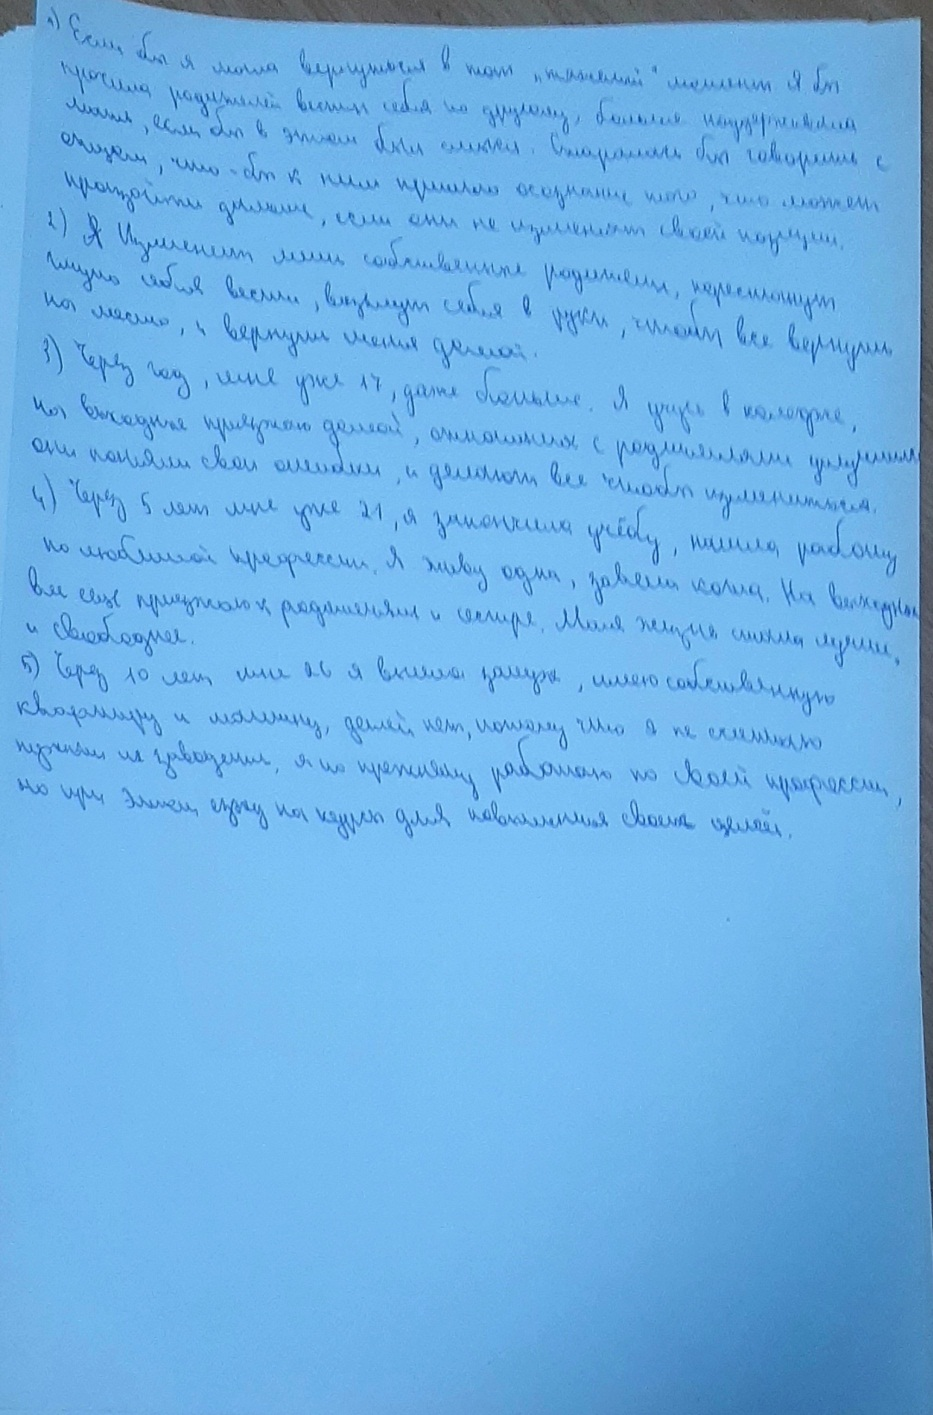 1) Если бы я могла вернуться в тот „тяжелый" момент я бы
просила родителей вести себя по другому, больше поддерживала
маму, если бы в этом был смысл. Старалась бы говорить с
отцом, что-бы к ним пришло осознание того, что может
произойти дальше, если они не изменят своей позиции.
2) Я Изменит мои собственные родители, перестанут
себя вести, возьмут себя в руки, чтобы все вернуть
на место, и вернуть меня домой.
3) Через год, мне уже 17, даже больше. Я учусь в колледже,
на выходные приезжаю домой, отношения с родителями улучшились
они поняли свои ошибки, и делают все чтобы измениться.
4) Через 5 лет мне уже 21, я закончила учёбу, нашла работу
по любимой профессии. Я живу одна, завела кота. На выходных
все еще приезжаю к родителям и сестре. Моя жизнь стала лучше,
и свободнее.
5) Через 10 лет мне 26 я вышла замуж, имею собственную
квартиру и машину, детей нет, потому что я не считаю
нужным их заводить, я по прежнему работаю по своей профессии,
но при этом на курсы для своих целей.